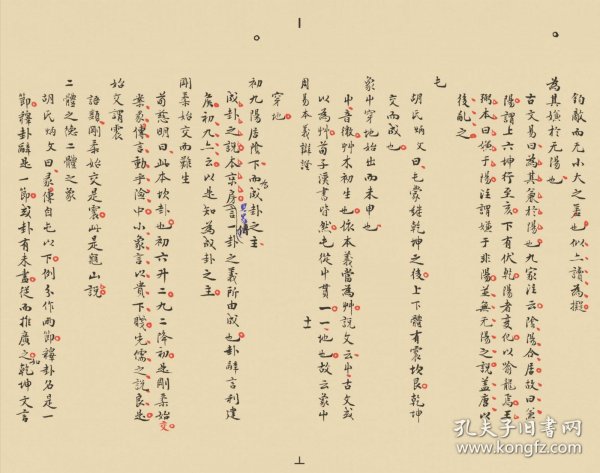 鈞敵而无小大之差也似上讀為擬
為其嫌於无陽也
古文易曰為其兼於陽也九家注云陰陽合居故曰兼
陽謂上六坤行至亥下有伏乾陽者變化以喻龍焉王
弼本曰嫌于陽注謂嫌于非陽並無无陽之說蓋唐以
後亂之
屯
胡氏炳文曰屯蒙繼乾坤之後上下體有震坎艮乾坤
交而成也
象中穿地始出而未申也
屮音徹艸木初生也依本義當為艸說文云屮古文或
以為艸苗子漢書皆然屯從屮貫一一地也故云象屮
周易本義辨證
十一
穿地
初九陽居陰下而為成卦之主
成卦之說本京房易傳言一卦之義所由成也卦辭言利建
侯初九亦云以是知為成卦之主
剛柔始交而難生
荀慈明曰此本坎卦也初六升二九二降初是剛柔始交
案彖傳言動乎險中小象言以貴下賤先儒之說良是
始交謂震
語類剛柔始交是震此是龜山說
二體之德二體之象
胡氏炳文曰彖傳自屯以下例分作兩節釋卦名是一
節釋卦辭是一節或卦有未盡從而推廣之如乾坤文言
孔夫子旧书网
www.kongfz.com